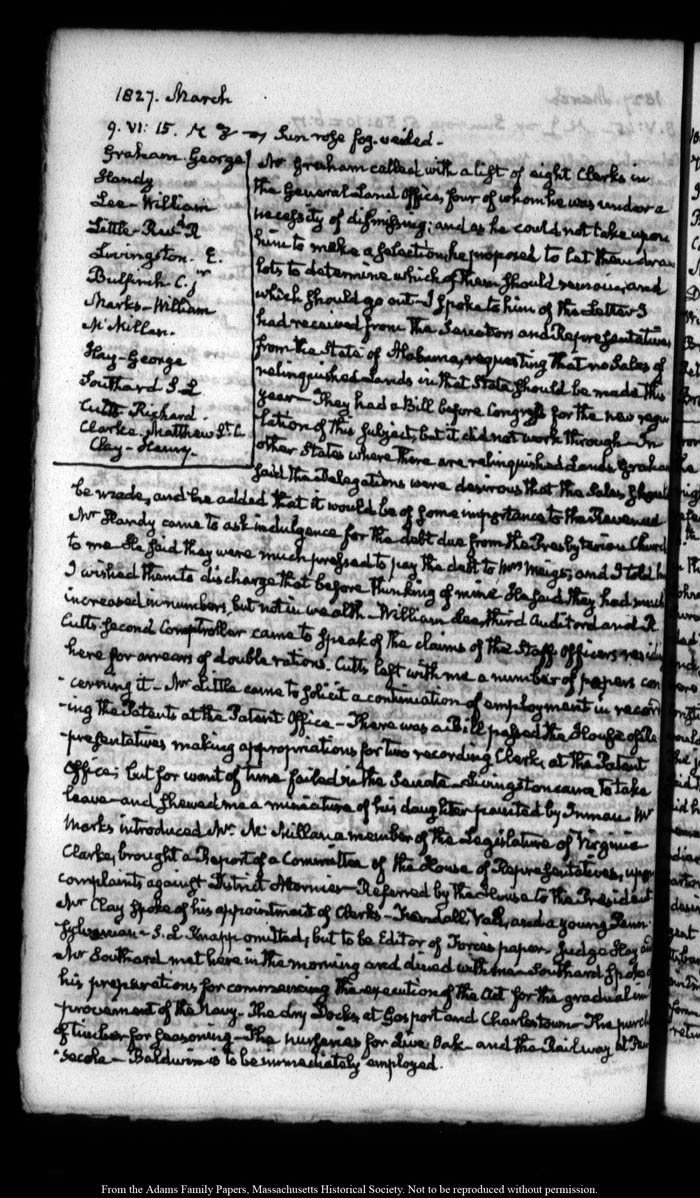 1827. March
9. VI: 15. Sun rose fog-veiled.
Graham. George
Handy
Lee- William
Little- Revd. R
Livingston. E.
Bulfinch. C. jr
Marks- William
McMillan.
Hay- George
Southard S. L
Cutts- Richard.
Clarke. Matthew St. C
Clay- Henry.
Mr Graham called with a list of eight Clerks in
the General Land Office, four of whom he was under a
necessity of dismissing; and as he could not take upon
him to make a selection, he proposed to let them draw
lots to determine which of them should remain, and
which should go out- I spoke to him of the Letter I
had received from the Senators and Representatives
from the State of Alabama, requesting that no Sales of
relinquished Lands in that State should be made this
year- They had a Bill before Congress for the new regu
lation of this subject, but it did not work through- In
other States where there are relinquished Lands, Graham
said the Delegations were desirous that the Sales should
be made, and he added that it would be of some importance to the Revenue
Mr Handy came to ask indulgence for the debt due from the Presbyterian Church
to me- He said they were much pressed to pay the debt to Mrs Meigs; and I told him
I wished them to discharge that before thinking of mine. He said they had much
increased in numbers, but not in wealth- William Lee, third Auditor and R
Cutts Second Comptroller came to speak of the claims of the Staff Officers residing
here for arrears of double rations. Cutts left with me a number of papers con
cerning it- Mr Little came to solicit a continuation of employment in record
-ing the Patents at the Patent Office- There was a Bill passed the House of Re
-presentatives making appropriations for two recording Clerks, at the Patent
Office; but for want of time failed in the Senate- Livingston came to take
leave- and shewed me a miniature of his daughter painted by Inman Mr
Marks introduced Mr McMillan a member of the Legislature of Virginia
Clarke, brought a Report of a Committee of the House of Representatives, upon
complaints against District Attornies- Referred by the House to the President
Mr Clay spoke of his appointment of Clerks- Kendall, Vail, and a young Penn-
sylvanian- S. L Knapp omitted, but to be Editor of Force's paper- Judge Hay and
Mr Southard met here in the morning and dined with me- Southard spoke of
his preparations for commencing the execution of the Act for the gradual im
provement of the Navy- The dry Docks at Gosport and Charlestown- The purch
of timber for seasoning- The live Oak- and the Railway at Pen
-sacola- Baldwin is to be immediately employed.
From the Adams Family Papers, Massachusetts Historical Society. Not to be reproduced without permission.